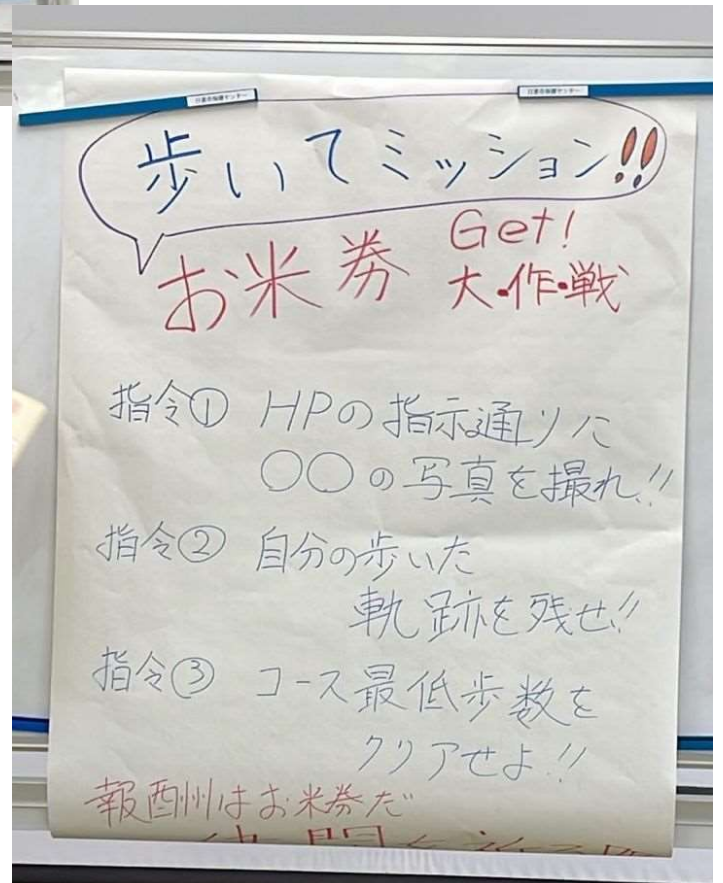 歩いてミッション!!
お米券 Get!
大・作・戦
指令① HPの指示通りに
○○の写真を撮れ!!
指令② 自分の歩いた
軌跡を残せ!!
指令③ コース最低歩数を
クリアせよ!!
報酬はお米券だ